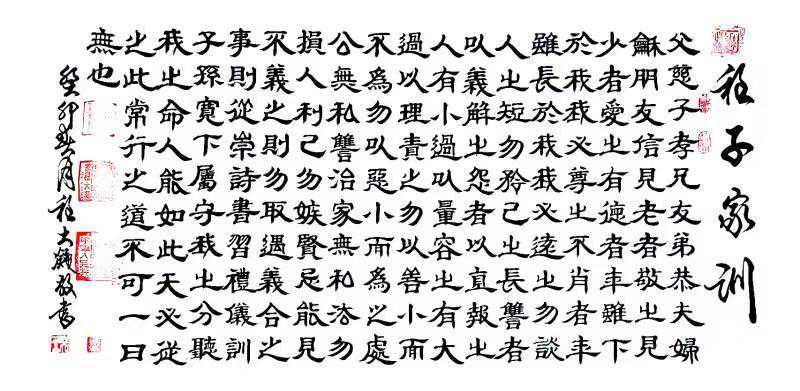 程子家訓
父慈子孝兄友弟恭夫婦
龢朋友信見老者敬之見
少者愛之有德者年雖下
於我我必尊之不肖者年
雖長於我我必遠之勿談
人之短勿矜己之長讐者
以義解之怨者以直報之
人有小過以量容之有大
過以理責之勿以善小而
不為勿以惡小而為之處
公無私讐治家無私法勿
損人利己勿嫉賢忌能見
不義之則勿取遇義合之
事則從崇詩書習禮儀訓
子孫寬下屬守我之分聽
我之命人能如此天必從
之此常行之道不可一日
無也
癸卯月程大敬書